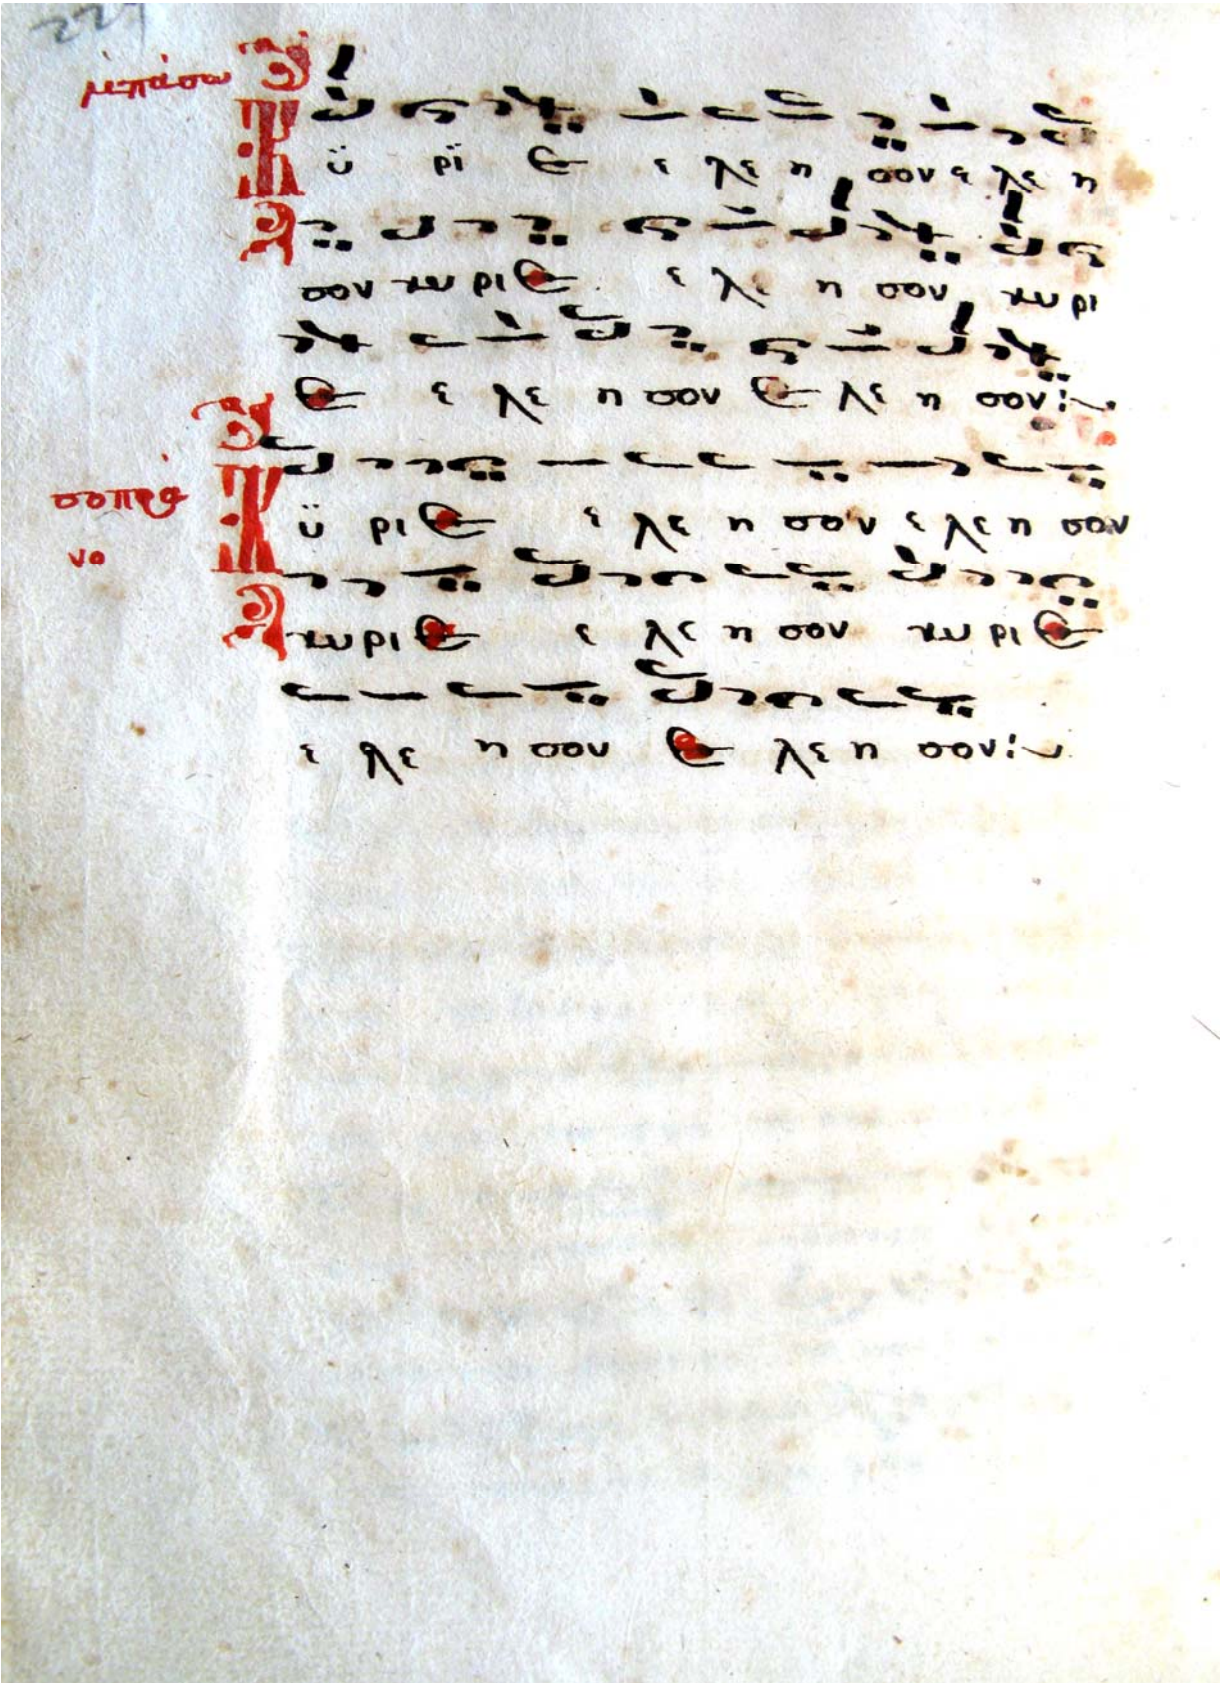 227
μπάσω
Κϋ ρϊ ε ε λε η σον ε λε η
σον κυ ρι ε ε λε η σον κυ ρι
ε ε λε η σον ε λε η σον :~
σοπρα
νο
Κϋ ρι ε ε λε η σον ε λε η σον
κυ ρι ε ε λε η σον κυ ρι ε
ε λε η σον ε λε η σον :~